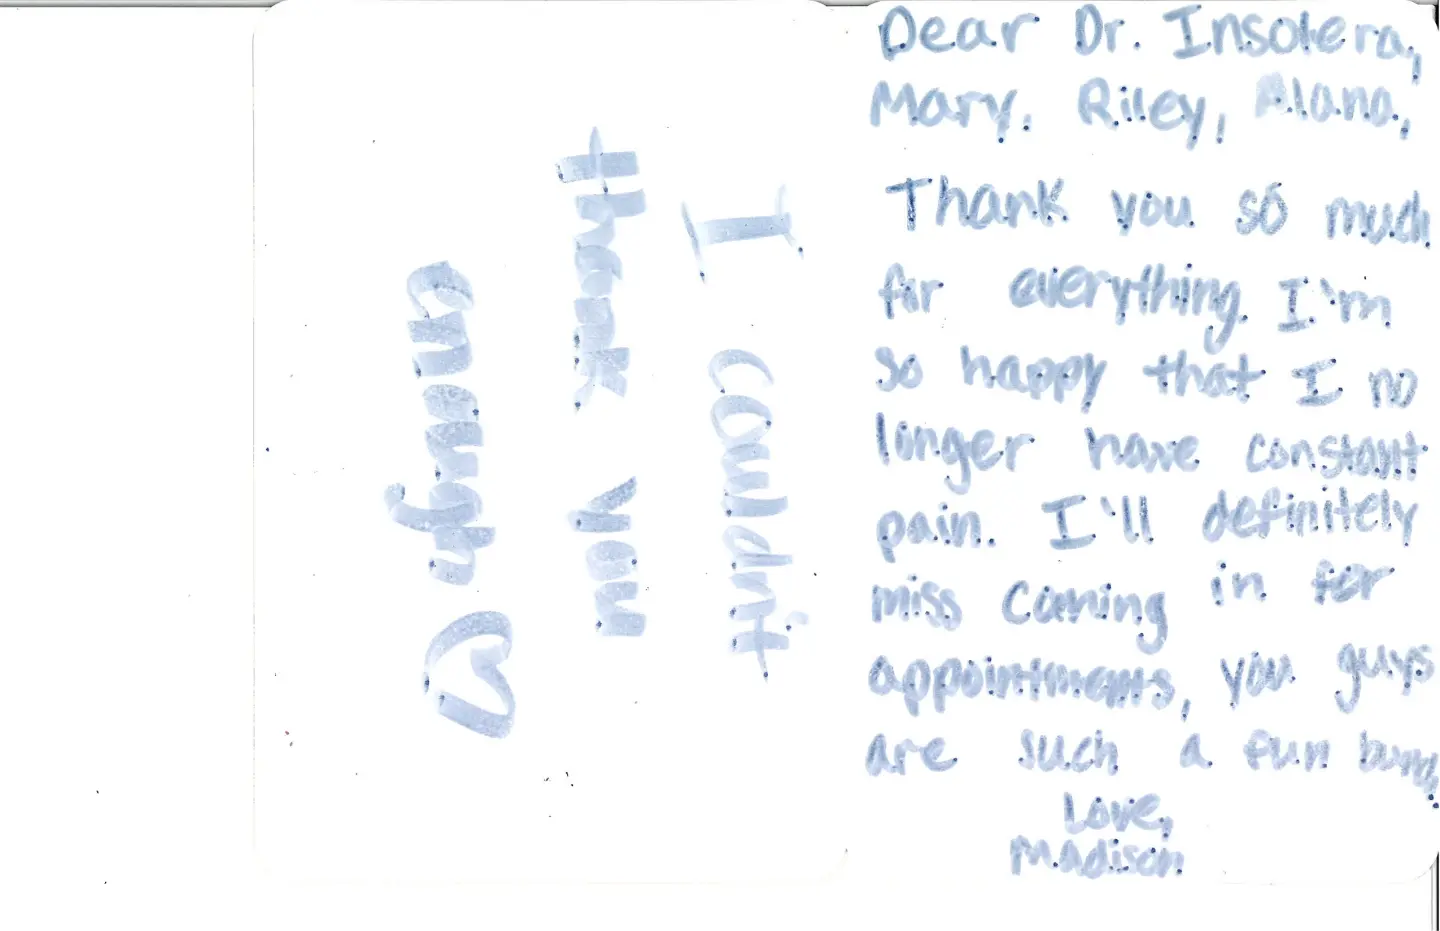 I couldn't
thank you
enough ♡
Dear Dr. Insolera,
Mary, Riley, Alana,
Thank you so much
for everything. I'm
so happy that I no
longer have constant
pain. I'll definitely
miss coming in for
appointments, you guys
are such a fun bunch,
Love,
Madison